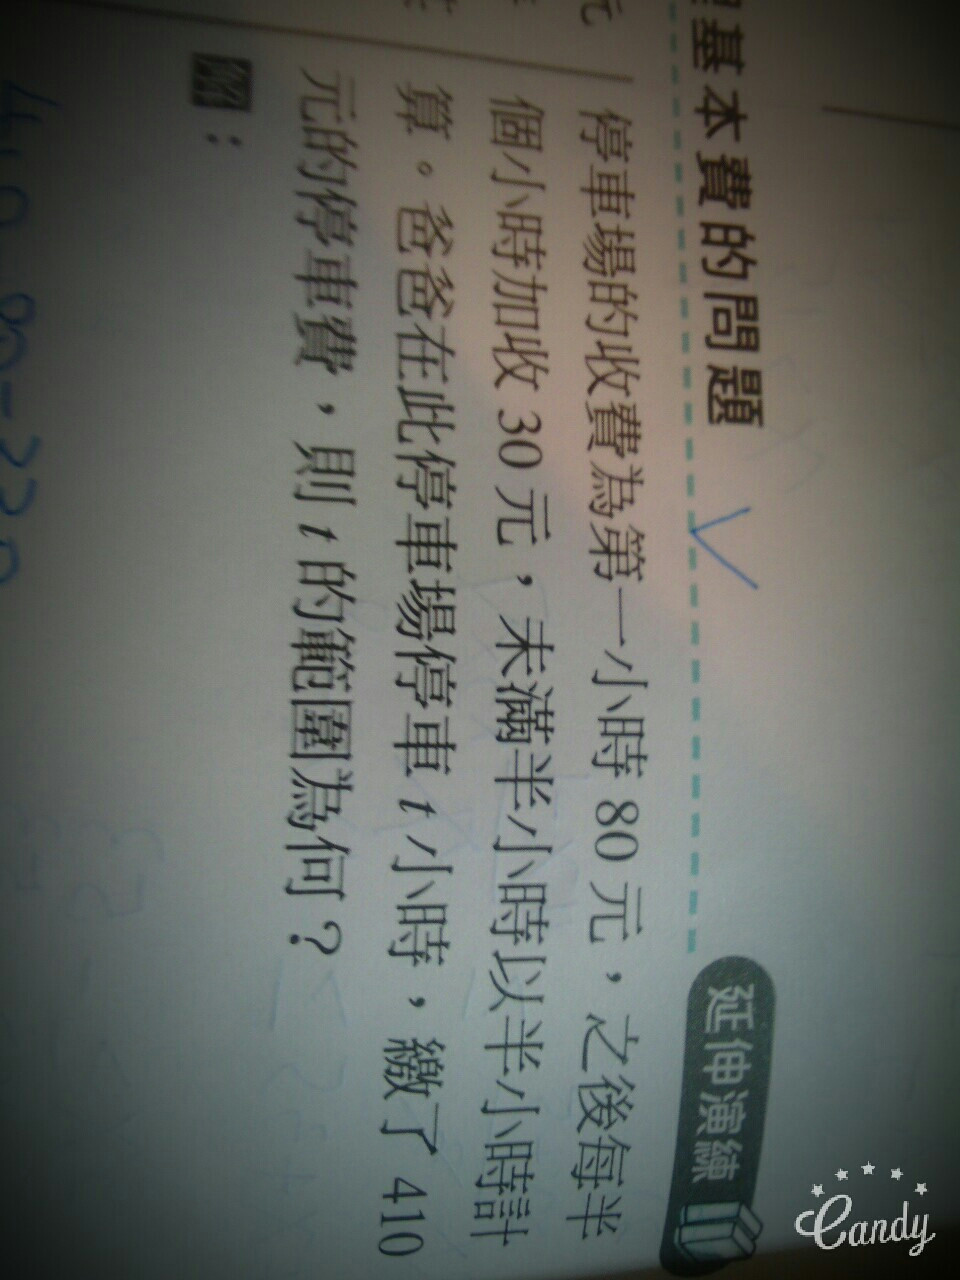 基本費的問題
延伸演練
元
停車場的收費為第一小時80元，之後每半
個小時加收30元，未滿半小時以半小時計
算。爸爸在此停車場停車t小時，繳了410
元的停車費，則t的範圍為何？
解：
Candy